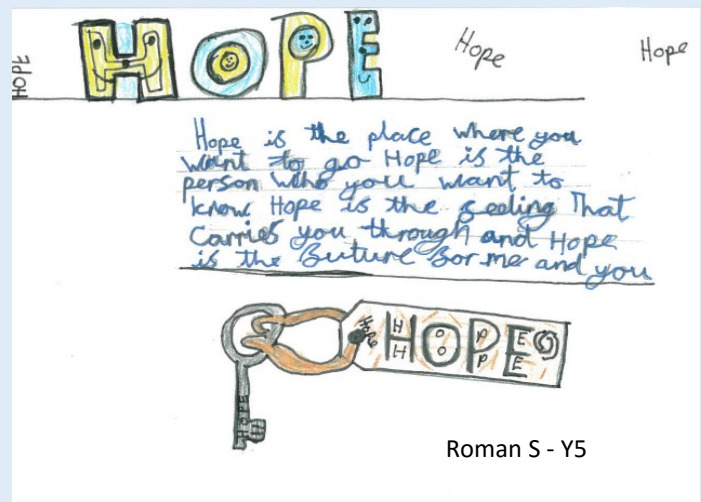 HOPE
HOPE
Hope
Hope
Hope is the place where you
want to go Hope is the
person who you want to
know Hope is the feeling That
Carries you through and Hope
is the future for me and you
Hope
HOPE
H H O P P E E
Roman S - Y5